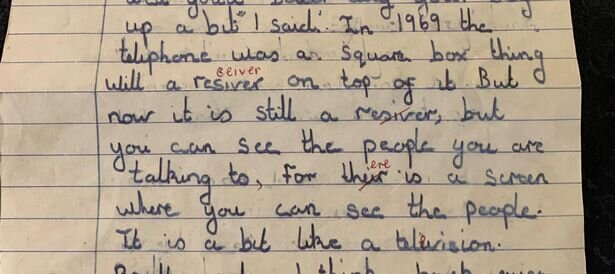 up a bit" I said. In 1969 the
teliphone was a square box thing
ceiver
will a resiver on top of it But
now it is still a resiver, but
you can see the people you are
ere
talking to, for their is a screen
where you can see the people.
It is a bit like a televison.